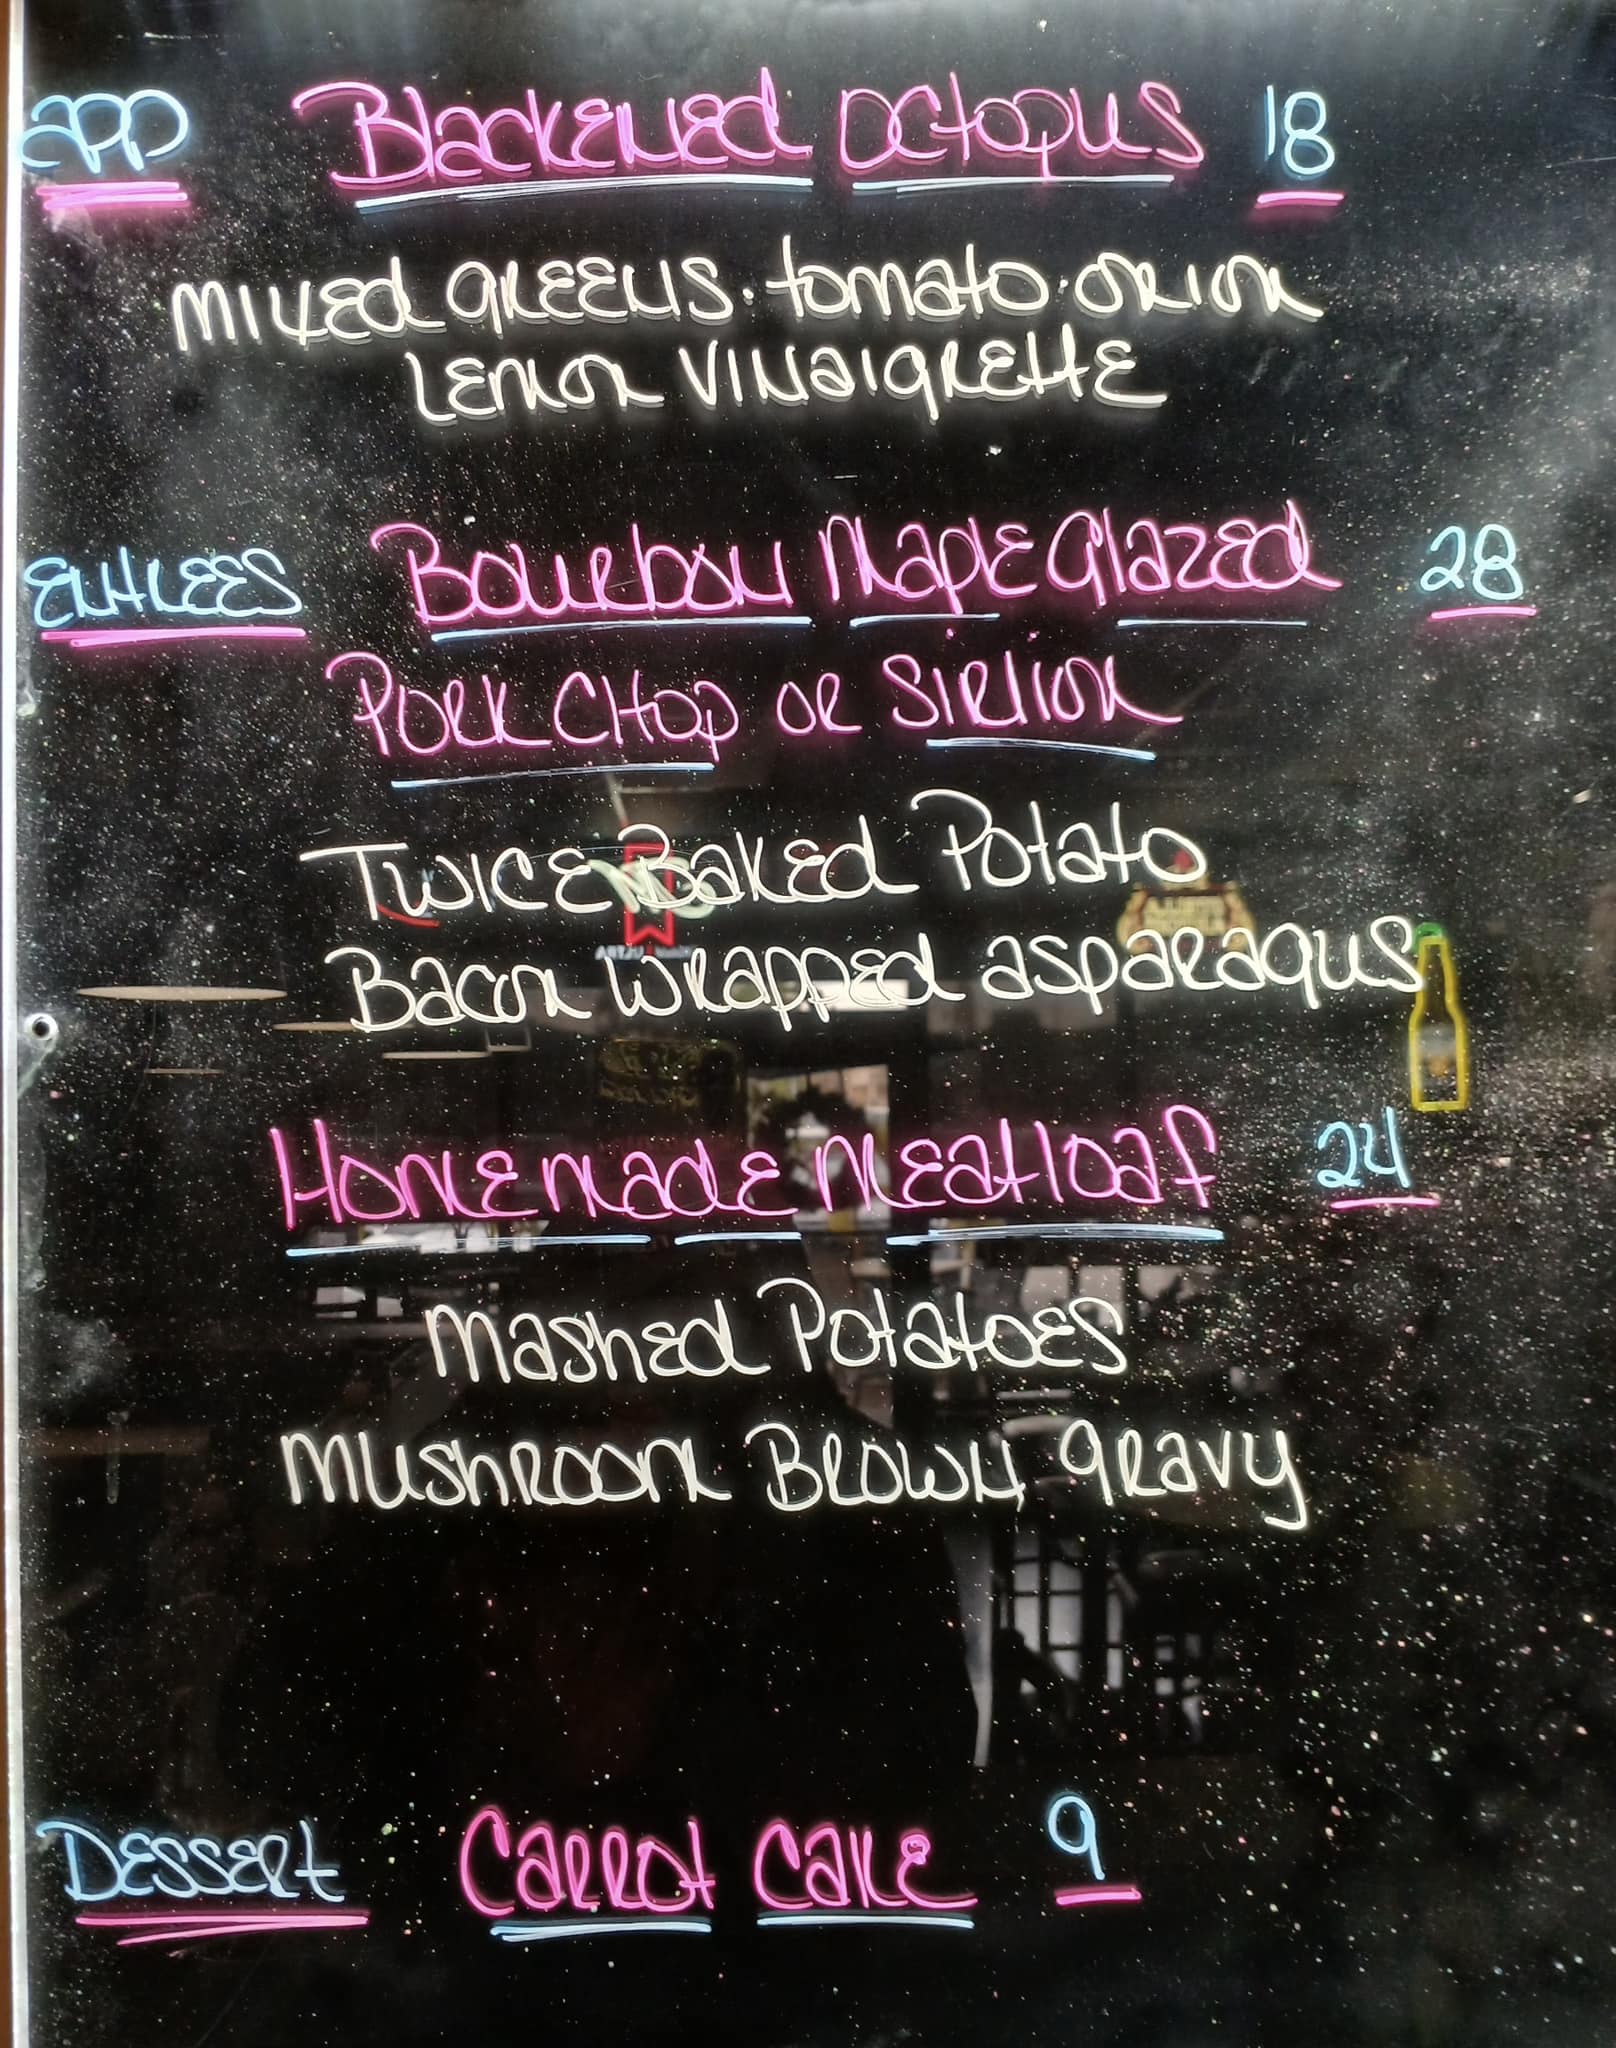 app Blackened Octopus 18
Mixed greens · tomato · onion
Lemon Vinaigrette
Entrees Bourbon Maple Glazed 28
Pork Chop or Sirlion
Twice Baked Potato
Bacon Wrapped asparagus
Homemade Meatloaf 24
Mashed Potatoes
Mushroom Brown gravy
Dessert Carrot Cake 9